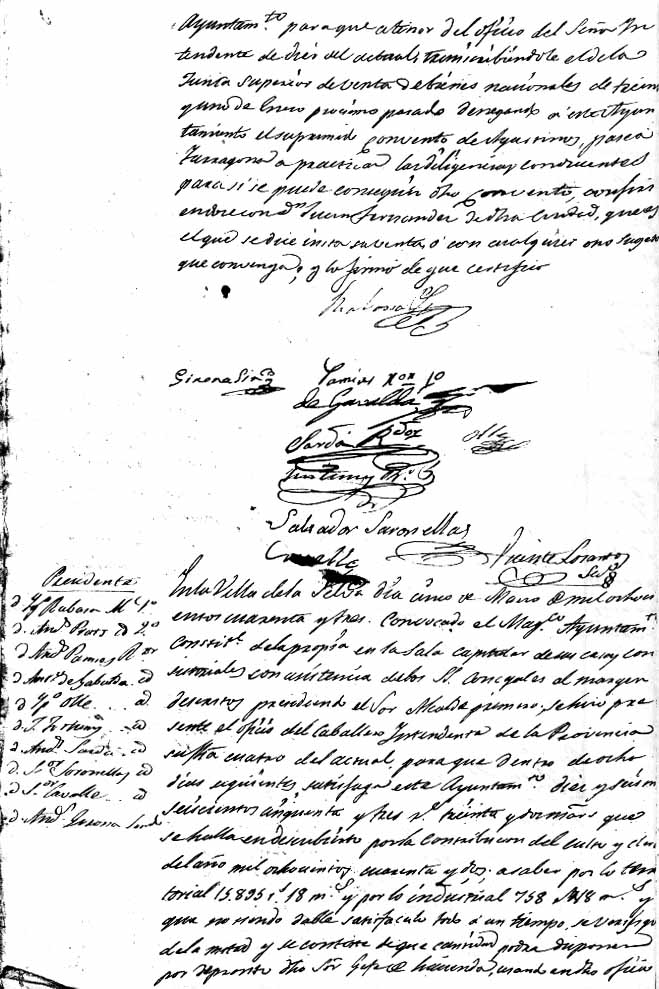 Ayuntam.to para que a tenor del oficio del Señor In
tendente de dies del actual, trascribiendole el de la
Junta superior de venta de bienes nacionales de trein
y uno de Enero procsimo pasado denegando a este Ayun
tamiento el suprimido Convento de Agustinos, pase a
Tarragona a practicar las diligencias conducentes
para si se puede conseguir dho Convento,
con Dn Juan Fernandez de dha Ciudad, que es
el que se dice insta su venta, o con cualquier otro sugeto
que convenga; y lo firmó de que certifico
Rabassa
Girona Sin.co
Pamies Ror
de Gavaldá
Sardá R.dor
Olle
Fortuny R.r
Salvador Saronellas
Cavallé
Vicente
Srio
Precidente
D. Yg.o Rabasa Al.e 1.o
D. And.u Prous id 2.o
D. And.u Pamies R.or
D. Ant.o de Gabalda id
D. Yg.o Olle id
D. J. Fortuny id
D. And.u Sarda id
D. S.or Soronellas id
D. S.or Cavalle id
D. And.u Gerona Sind.
En la Villa de la Selva dia cinco de Marzo de mil ochoci
entos cuarenta y tres. Convocado el Mag.co Ayuntam.to
Constit.l de la propia en la Sala capitular de sus casas con
sistoriales con asistencia de los S.S. Concejales al margen
descritos presidiendo el Sor Alcalde primero, se hizo pre
sente el oficio del Caballero Intendente de la Provincia
su fha cuatro del actual, para que dentro de ocho
dias siguientes, satisfaga este Ayuntam.to diez y seis m
seiscientos cinquenta y tres r.s treinta y dos mars que
se halla en descubierto por la contribucion del culto y clero
del año mil ochocientos cuarenta y dos. a saber por lo terri
torial 15.895 r.s 18 m.s y por lo industrial 758
que no siendo dable satisfacerlo todo a un tiempo, se verifique
de la mitad y se conteste de que cantidad podra disponer
por depronto dho Sor Gefe de hacienda, usando en dho oficio